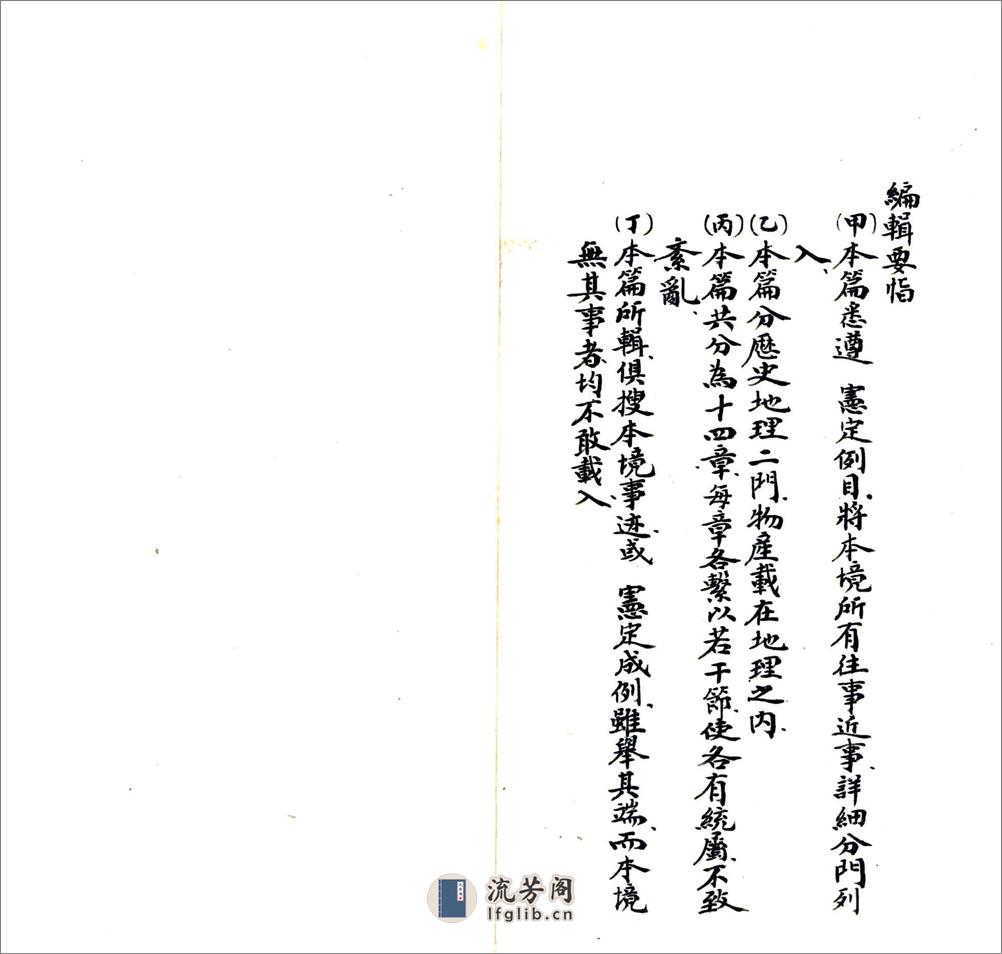 編輯要恉
(甲)本篇悉遵 憲定例目、將本境所有往事近事、詳細分門列
入、
(乙)本篇分歷史地理二門、物產載在地理之內、
(丙)本篇共分為十四章、每章各繫以若干節、使各有統屬、不致
紊亂、
(丁)本篇所輯、俱搜本境事迹、或 憲定成例、雖舉其端、而本境
無其事者、均不敢載入、
流芳阁
lfglib.cn